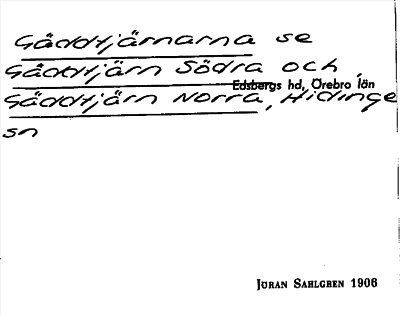 Gäddtjärnarna se
Gäddtjärn Södra och
Edsbergs hd, Örebro län
Gäddtjärn Norra, Hidinge
sn
JÖRAN SAHLGREN 1906